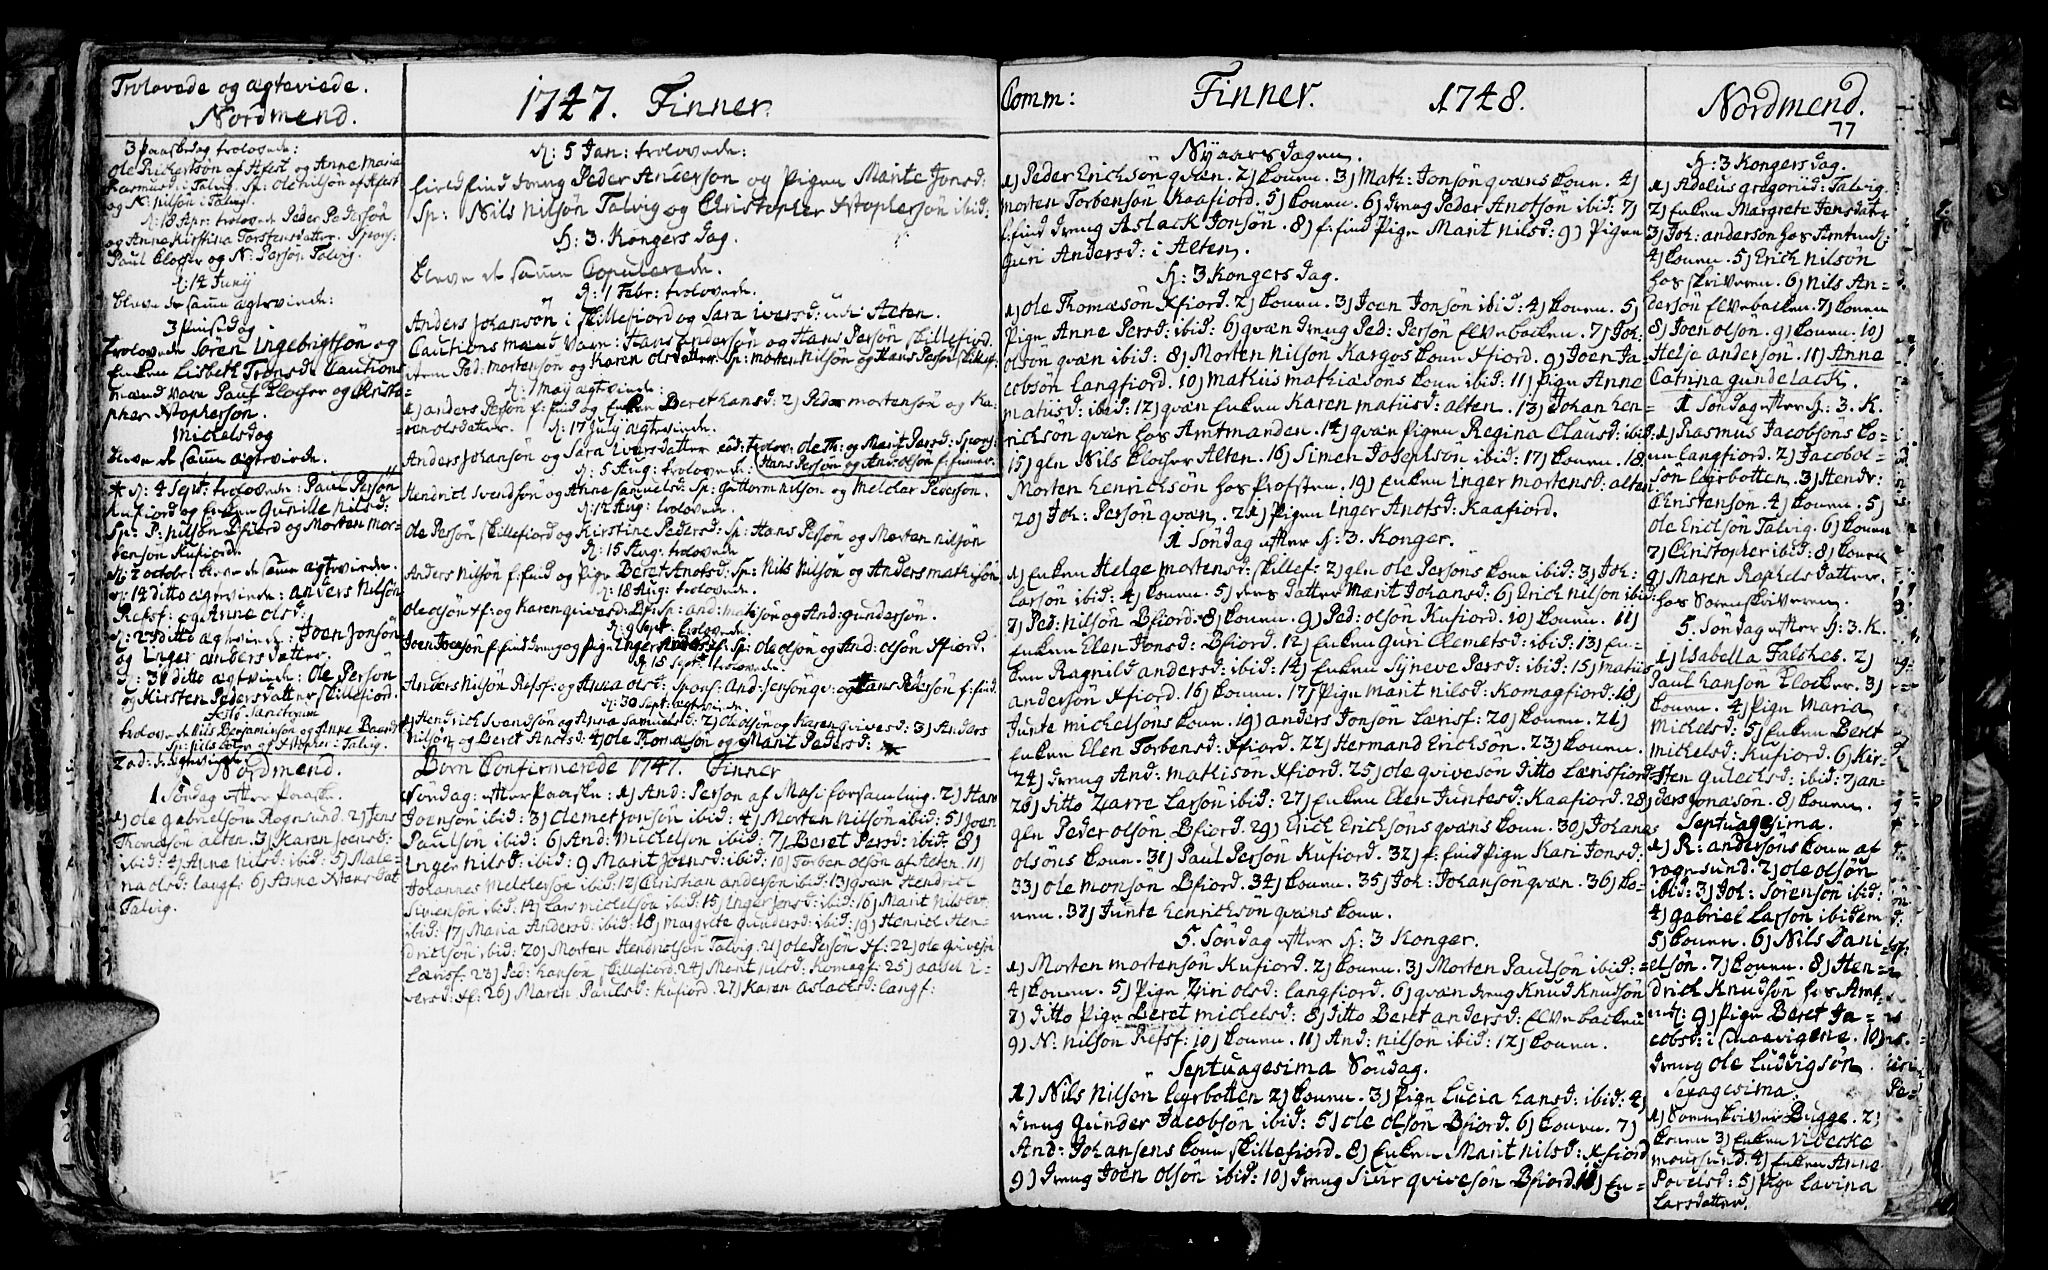 Trolovede og ægteviede.
Nordmend.
3 Paaskedag trolovede:
Ole Richertsön af Afest og Anne Maria
Rasmusd: i Talvig. Sp: Ole Nilsön af Afest
og N: Nilsön i Talvig.
d: 18 Apr: trolovede Peder Pedersön
og Anne Kirstina Torstensdatter. Spons:
Paul Clocher og N: Person Talvig.
d: 14 Junij
bleve de samme ægteviede:
3 Pinsedag
trolovede Sören Ingebrigtsön og
Enken Lisbeth Tronsd: Cautions
mænd vare Paul Klocher og Christo=
pher Xstopherson.
Michelsdag
bleve de samme ægteviede.
* d: 4 Sept: trolovede: Paul Persön
Kufiord og Enken Gunille Nilsd:
Sp: P: Nilsön Bfiord og Morten Mor=
tensön Kufiord.
d: 2 octobr: bleve de samme ægteviede.
d: 14 ditto ægteviede: Anders Nilsön
Refsf: og Anne olsd:
d: 23 ditto ægteviede: Joen Jonsön
og Inger andersdatter.
d: 31 ditto ægteviede: Ole Persön
og Kirsten Pedersdatter skillefiord.
Festo Sanctorum
trolovede Nils Benjaminsön og Anne Baard
Sp: Nils og Xstopher i Talvig.
2 ad: ægteviede
Nordmend.
1 Söndag efter Paaske.
1) ole gabrielsön Rognsund. 2) Jens
Thomæsön alten. 3) Karen Joensd:
ibid: 4) Anne Nilsd: ibid: 5) Male=
na olsd: langf: 6) Anne Xstensdat
Talvig.
1747. Finner.
d: 5 Jan: trolovede:
fieldfind dreng Peder Anderson og Pigen Marite Jonsd:
Sp: Nils Nilsön Talvig og Christopher Xstophersön ibid:
H: 3. Kongers dag.
bleve de samme Copulerede.
d: 1 Febr: trolovede.
Anders Johansön i Skillefiord og Sara Iversd: udi Alten.
Cautions mænd vare: Hans Andersön og Hans Persön skillefiord.
item Ped: Mortenson og Karen olsdatter. Sp: Morten Nilson og Hans Persön skillef.
d: 7 May ægteviede:
1) anders Persön f: find og Enken Beret hansd: 2) Peder Mortensön og Ka=
ren olsdatter. d: 17 July ægteviede.
Anders Johansön og Sara Iversdatter eod: trolov: ole Th: og Marit Persd: Spons:
d: 5 Aug: trolovede: Hans Persön og And: olsön f: finner.
Hendrick Svendsön og Anne Samuelsd: Sp: Guttorm Nilson og Melcher Pederson.
d: 12 Aug: trolovede.
Ole Persön skillefiord og Kirstine Pedersd: Sp: Hans Persön og Morten Nilsön
d: 15 Aug: trolovede
Anders Nilsön f: find og Pigen Beret Anotsd: Sp: Nils Nilsön og Anders mathisön
d: 18 Aug: trolovede.
Ole olsön xf: og Karen qvivesd: Bf: Sp: and: matisön og And: gundersön.
d: 9 Sept: trolovede
Joen Joensön f: find dreng og Pigen Inger Andersd: Sp: Ole olsön og And: olsön Xfiord.
d: 15 Sept: trolovede.
Anders Nilsön Refsf: og Anna olsd: Spons: And: Jersön qv: og Hans Pedersön f: find.
d: 30 Sept: ægteviede
1) Hendrich Svendsön og Anna Samuelsd: 2) Ole olsön og Karen qvivesd: 3) Anders
Nilsön og Beret Anotsd: 4) ole Thomasön og Marit Pedersd: *
Börn Confirmerede 1747. Finner
1 Söndag: efter Paaske: 1) And: Person af Masi forsamling. 2) Hans
Joensön ibid: 3) Clemet Jonsön ibid: 4) Morten Nilsön ibid: 5) Joen
Paulsön ibid: 6) And: Michelsön ibid: 7) Beret Persd: ibid: 8)
Inger Nilsd: ibid: 9 Marit Joensd: ibid: 10) Torben olsön af Alten. 11)
Johannes Melchersön ibid: 12) Christian andersön ibid: 13) qvæn Hendrich
Sivensön ibid: 14) Lars michelsön ibid: 15) Inger Jonsd: ibid: 16) Marit Nilsdat:
ibid: 17) Maria Andersd: ibid: 18) margrete gundersd: ibid: 19) Henrich Hen=
drichsön ibid: 20) Morten Hendrichsön Talvig. 21) ole Persön xf: 22) ole qvivesön
Lærisf. 23) Ped: hansön skillefiord. 24) Marit Nilsd: Komagf: 25) aasel i=
versd: xf: 26) Maren Paulsd: Kufiord. 27) Karen aslachsd: langf:
Comm: Finner. 1748.
Nyaarsdagen.
1) Peder Erichsön qvæn. 2) konen. 3) Math: Jonsön qvæns kone. 4)
Morten Torbensön Kaafiord. 5) konen. 6) dreng Peder Anotson ibid: 7)
f: find dreng Aslack Jonsön. 8) f: find Pigen Marit Nilsd: 9) Pigen
Guri Andersd: i Alten.
H: 3 Kongers dag.
1) Ole Thomæsön Xfiord. 2) konen. 3) Joen Jonsön ibid: 4) konen. 5)
Pigen Anne Persd: ibid: 6) qvæn dreng Ped: Persön Elvebacken. 7) Joh:
olson qvæn ibid: 8) Morten Nilsön Kargos kone Xfiord. 9) Joen Ja=
cobson langfiord. 10) Mathis mathiasöns kone ibid: 11) Pigen Anne
matiisd: ibid: 12) qvæn Enken Karen matiisd: alten. 13) Johan Hen=
richsön qvæn hos Amtmanden. 14) qvæn Pigen Regina Clausd: ibid:
15) glm Nils klocher Alten. 16) Simen Josephson ibid: 17) konen. 18
Morten Henrichsön hos Profsten. 19) Enken Inger mortensd: alten
20) Joh: Persön qvæn. 21) Pigen Inger Anotsd: Kaafiord.
1 Söndag efter H: 3. Konger.
1) Enken Helge mortensd: skillef: 2) glm ole Persöns kone ibid: 3) Joh:
Larsön ibid: 4) konen. 5) deres datter Marit Johansd: 6) Erich Nilson ibid:
7) Ped: Nilsön Bfiord. 8) konen. 9) Ped: olsön Kufiord. 10) konen. 11)
Enken Elen Jonsd: Bfiord. 12) Enken Guri Clemetsd: ibid: 13) En=
ken Ragnild andersd: ibid: 14) Enken Syneve Persd: ibid: 15) matiis
andersön Xfiord. 16) konen. 17) Pigen Marit Nilsd: Komagfiord: 18)
Junte michelsons kone. 19) anders Jonsön Lærisf: 20) konen. 21)
Enken Elen Torbensd: Xfiord. 22) Hermand Erichsön. 23) konen.
24) dreng And: mathisön Xfiord. 25) ole qvivesön ditto Lærisfiord
26) ditto Zarre Larsön ibid: 27) Enken Elen Juntesd: Kaafiord. 28)
glm Peder olsön Bfiord. 29) Erich Erichsöns qvæns kone. 30) Johanes
olsöns kone. 31) Paul Persön Kufiord. 32) f: find Pigen Kari Jonsd:
33) ole monsön Bfiord. 34) konen. 35) Joh: Johansön qvæn. 36) ko=
nen. 37) Junte Henrichsön qvæns kone.
5. Söndag efter H: 3 Konger.
1) Morten mortensön Kufiord. 2) konen. 3) Morten Paulsön ibid:
4) konen. 5) Pigen Ziri olsd: langfiord. 6) qvæn dreng Knud Knudson
7) ditto Pigen Beret michelsd: 8) ditto Beret andersd: Elvebacken
9) N: Nilson Refsf: 10) konen. 11) And: Nilsön ibid: 12) konen.
Septuagesima Söndag.
1) Nils Nilsön Lerbotten 2) konen. 3) Pigen Lucia hansd: ibid: 4)
dreng Gunder Jacobsön ibid: 5) ole olsön Bfiord. 6) konen. 7)
And: Johansens kone skillefiord. 8) Enken Marit Nilsd: Xfiord
9) dreng Joen olsön ibid: 10) dreng Siur qvivesön Bfiord. 11) En=
Nordmend.
77
H: 3 Kongersdag.
1) Adelus gregorid: Talvig.
2) Enken Margrete Jensdatr
3) Joh: anderson hos Amtmd:
4) konen. 5) Erich Nilsön
hos skriveren. 6) Nils An=
dersön Elvebacken. 7) konen
8) Joen olson. 9) konen. 10)
Helje andersön. 11) Anne
Catrina gundelach.
1 Söndag efter H: 3. K.
1) Rasmus Jacobsöns ko=
nen langfiord. 2) Jacob ol=
sön Lerbotten. 3) Hendr:
Christensön. 4) konen. 5)
Ole Erichsön Talvig. 6) konen
7) Christopher ibid: 8) konen
9) Maren Raphelsdatter.
hos Sorenskriveren.
5. Söndag efter H: 3. K.
1) Isabella Falches. 2)
Paul hanson Klocker. 3)
konen. 4) Pigen Maria
Michelsd: 5) Enken Beret
Michelsd: Kufiord. 6) Kir=
sten gulechsd: ibid: 7) an=
ders Jonasön. 8) konen.
Septuagesima.
1) R: andersöns kone af
rognsund. 2) ole olsön
ibid: 3) Joh: Sörensön ibid:
4) gabriel Larsön ibidem
5) konen. 6) Nils Dani=
elsön. 7) konen. 8) Hen=
drich Knudsön hos Amt
md: 9) Pigen Beret Ja=
cobsd: i Smaavigene. 10)
dreng Ole Ludvigsön.
Sexagesima.
1) Sorenskriver Bugge. 2)
konen 3) Enken Vivecke
moursund. 4) Enken Anne
Povelsd: 5) Pigen Lavina
Larsdatter.